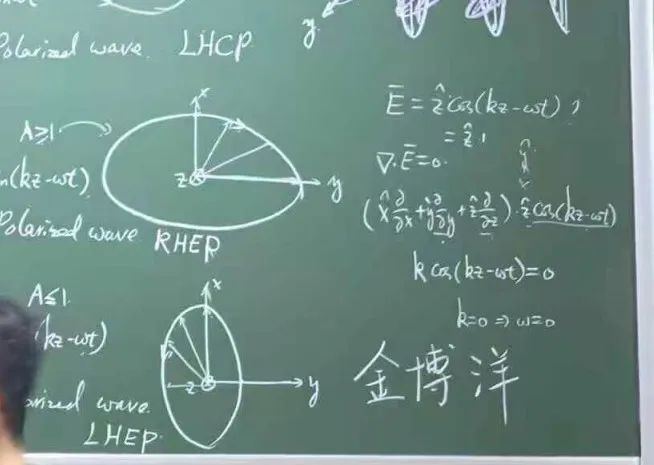 Polarized wave. LHCP
y
x
A≥1
z
y
n(kz-ωt)
Polarized wave RHEP
x
A≤1.
(kz-ωt)
z
y
rized wave.
LHEP.
Ē = ẑcos(kz-ωt),
= ẑ·1
∇·Ē=0.
ŷ
(x̂ ∂/∂x + ŷ ∂/∂y + ẑ ∂/∂z)·ẑ cos(kz-ωt)
k cos(kz-ωt)=0
k=0 ⇒ ω=0
金博洋